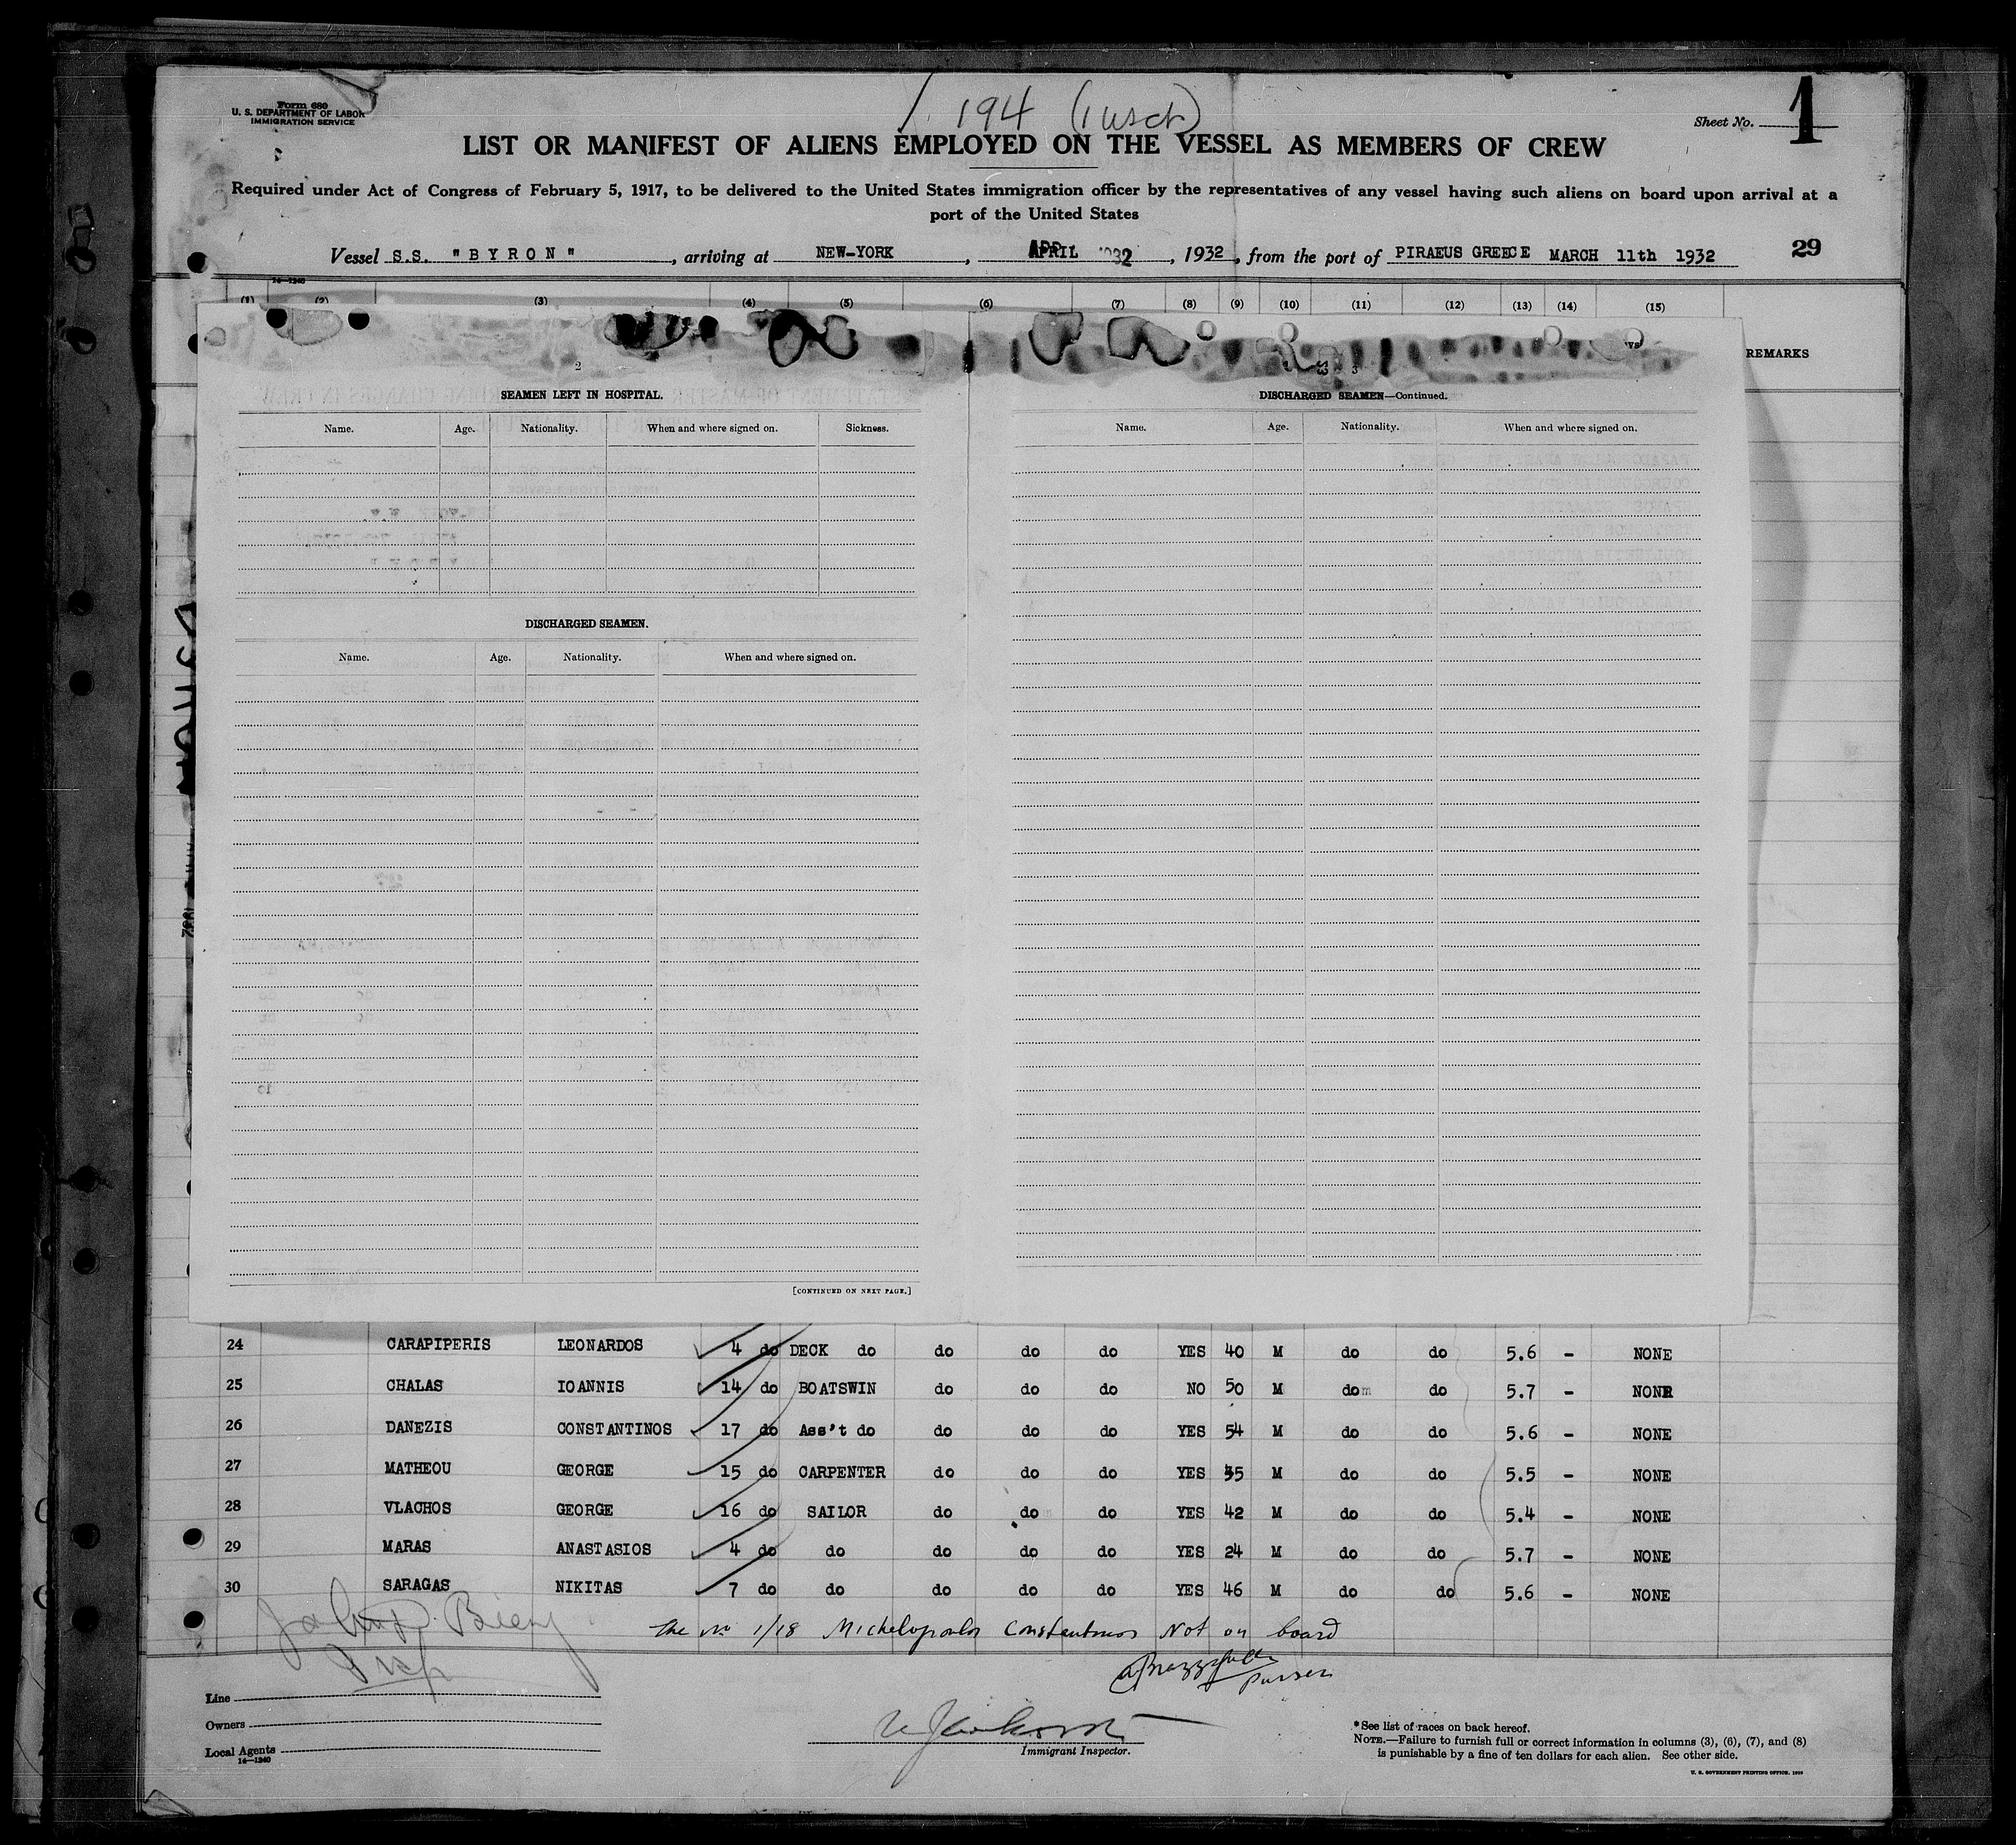 Form 680
U. S. DEPARTMENT OF LABOR
IMMIGRATION SERVICE
194
Sheet No. 1
LIST OR MANIFEST OF ALIENS EMPLOYED ON THE VESSEL AS MEMBERS OF CREW
Required under Act of Congress of February 5, 1917, to be delivered to the United States immigration officer by the representatives of any vessel having such aliens on board upon arrival at a
port of the United States
Vessel S.S. "BYRON", arriving at NEW-YORK, APRIL, 1932, from the port of PIRAEUS GREECE MARCH 11th 1932 29
14-1240
(1) (2) (3) (4) (5) (6) (7) (8) (9) (10) (11) (12) (13) (14) (15)
REMARKS
2
SEAMEN LEFT IN HOSPITAL.
Name. Age. Nationality. When and where signed on. Sickness.
DISCHARGED SEAMEN.
Name. Age. Nationality. When and where signed on.
[CONTINUED ON NEXT PAGE.]
3
DISCHARGED SEAMEN—Continued.
Name. Age. Nationality. When and where signed on.
24 CARAPIPERIS LEONARDOS 4 do DECK do do do do YES 40 M do do 5.6 - NONE
25 CHALAS IOANNIS 14 do BOATSWIN do do do NO 50 M do do 5.7 - NONE
26 DANEZIS CONSTANTINOS 17 do Ass't do do do do YES 54 M do do 5.6 - NONE
27 MATHEOU GEORGE 15 do CARPENTER do do do YES 35 M do do 5.5 - NONE
28 VLACHOS GEORGE 16 do SAILOR do do do YES 42 M do do 5.4 - NONE
29 MARAS ANASTASIOS 4 do do do do do YES 24 M do do 5.7 - NONE
30 SARAGAS NIKITAS 7 do do do do do YES 46 M do do 5.6 - NONE
The No 1/18 Michelopoulos Constantinos Not on board
purser
Insp
Line
Owners
Local Agents
14-1240
Immigrant Inspector.
*See list of races on back hereof.
NOTE.—Failure to furnish full or correct information in columns (3), (6), (7), and (8)
is punishable by a fine of ten dollars for each alien. See other side.
U. S. GOVERNMENT PRINTING OFFICE.